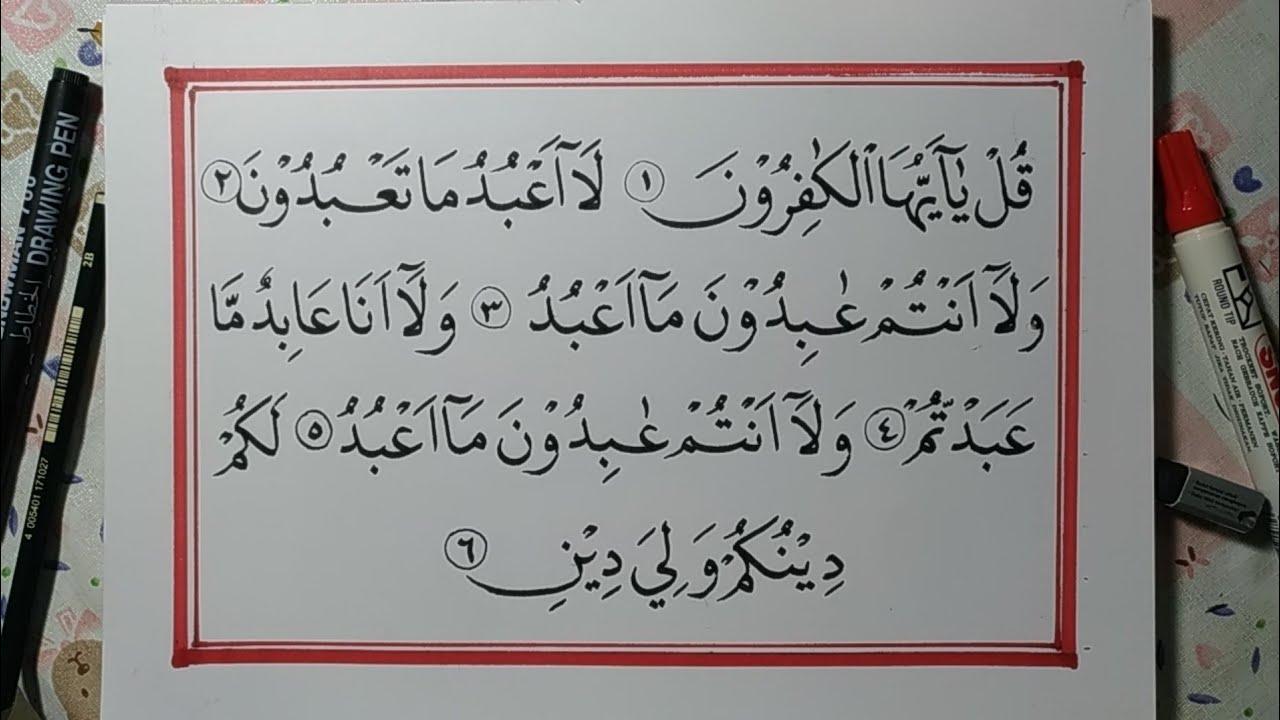 قُلْ يٰٓاَيُّهَا ٱلْكٰفِرُوْنَ ١ لَآ اَعْبُدُ مَا تَعْبُدُوْنَ ٢
وَلَآ اَنْتُمْ عٰبِدُوْنَ مَآ اَعْبُدُ ٣ وَلَآ اَنَا۠ عَابِدٌ مَّا
عَبَدْتُّمْ ٤ وَلَآ اَنْتُمْ عٰبِدُوْنَ مَآ اَعْبُدُ ٥ لَكُمْ
دِيْنُكُمْ وَلِيَ دِيْنِ ٦
DRAWING PEN
الخطاط
2B
4 005401 171027
ROUND TIP